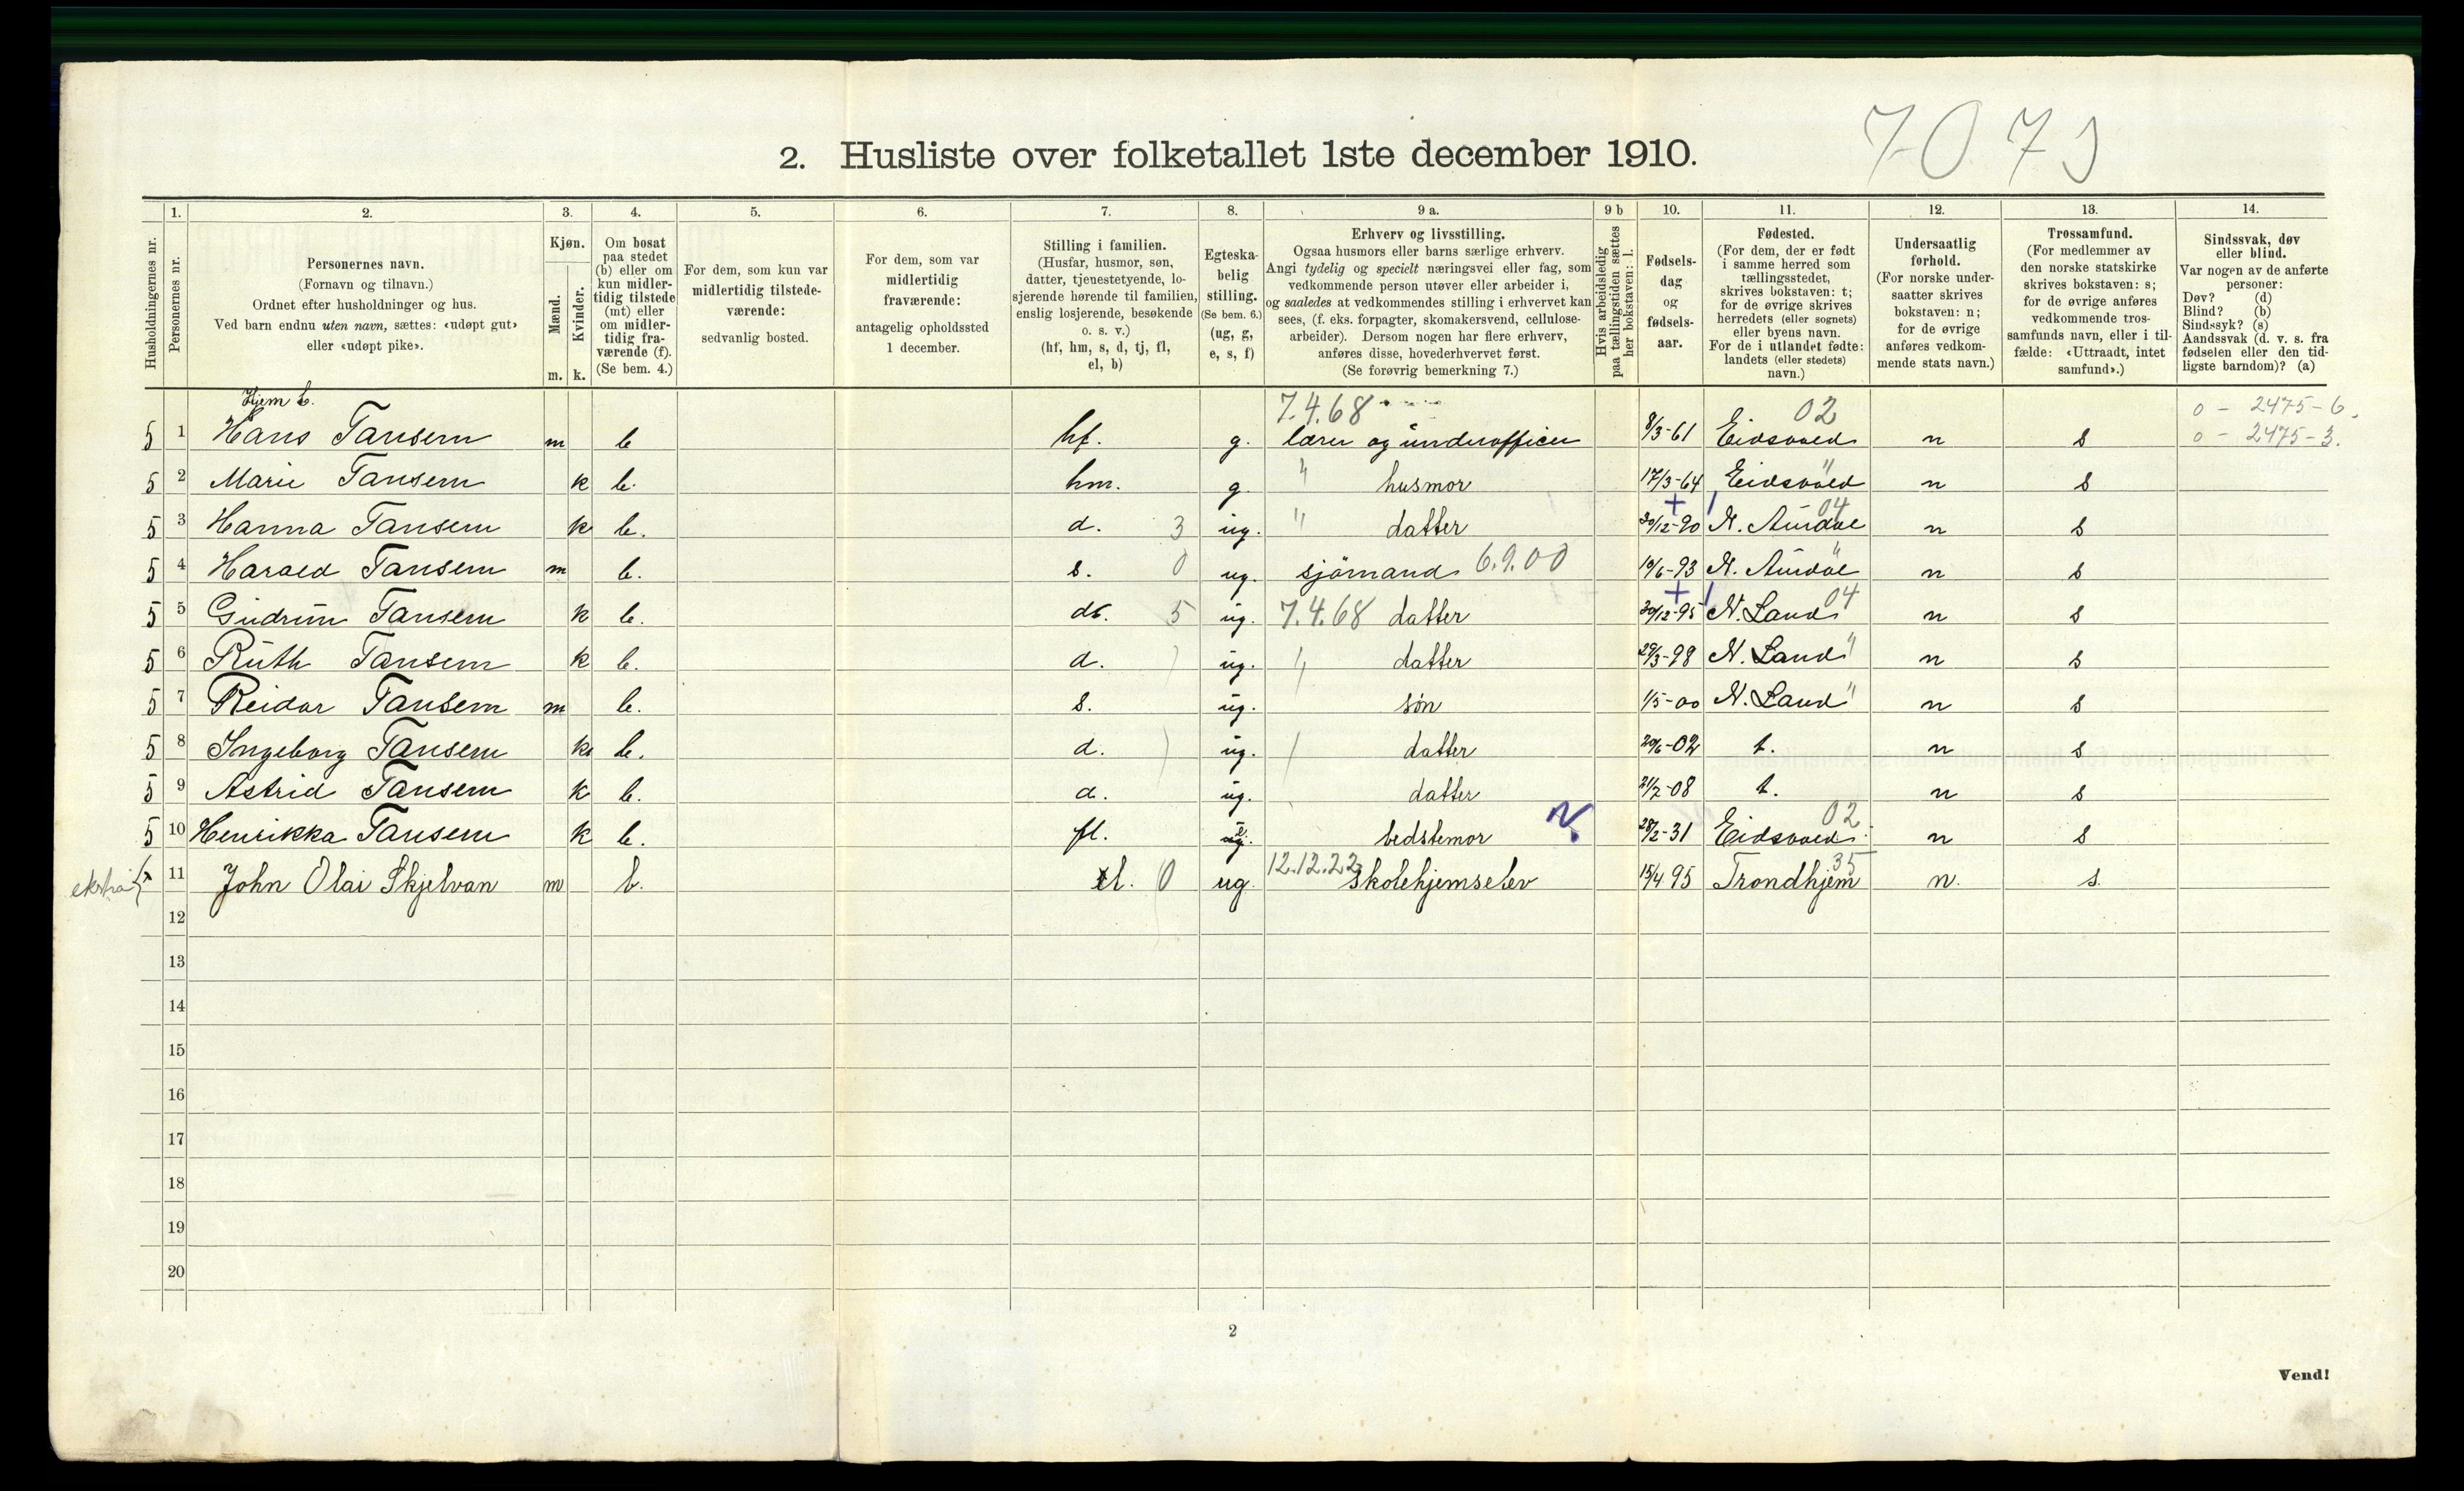 7073
2. Husliste over folketallet 1ste december 1910.
Husholdningernes nr.
1. Personernes nr.
2. Personernes navn.
(Fornavn og tilnavn.)
Ordnet efter husholdninger og hus.
Ved barn endnu uten navn, sættes: «udøpt gut»
eller «udøpt pike».
3. Kjøn.
Mænd. m.
Kvinder. k.
4. Om bosat
paa stedet
(b) eller om
kun midler-
tidig tilstede
(mt) eller
om midler-
tidig fra-
værende (f).
(Se bem. 4.)
5. For dem, som kun var
midlertidig tilstede-
værende:
sedvanlig bosted.
6. For dem, som var
midlertidig
fraværende:
antagelig opholdssted
1 december.
7. Stilling i familien.
(Husfar, husmor, søn,
datter, tjenestetyende, lo-
sjerende hørende til familien,
enslig losjerende, besøkende
o. s. v.)
(hf, hm, s, d, tj, fl,
el, b)
8. Egteska-
belig
stilling.
(Se bem. 6.)
(ug, g,
e, s, f)
9 a. Erhverv og livsstilling.
Ogsaa husmors eller barns særlige erhverv.
Angi tydelig og specielt næringsvei eller fag, som
vedkommende person utøver eller arbeider i,
og saaledes at vedkommendes stilling i erhvervet kan
sees, (f. eks. forpagter, skomakersvend, cellulose-
arbeider). Dersom nogen har flere erhverv,
anføres disse, hovederhvervet først.
(Se forøvrig bemerkning 7.)
9 b Hvis arbeidsledig
paa tællingstiden sættes
her bokstaven: l.
10. Fødsels-
dag
og
fødsels-
aar.
11. Fødested.
(For dem, der er født
i samme herred som
tællingsstedet,
skrives bokstaven: t;
for de øvrige skrives
herredets (eller sognets)
eller byens navn.
For de i utlandet fødte:
landets (eller stedets)
navn.)
12. Undersaatlig
forhold.
(For norske under-
saatter skrives
bokstaven: n;
for de øvrige
anføres vedkom-
mende stats navn.)
13. Trossamfund.
(For medlemmer av
den norske statskirke
skrives bokstaven: s;
for de øvrige anføres
vedkommende tros-
samfunds navn, eller i til-
fælde: «Uttraadt, intet
samfund».)
14. Sindssvak, døv
eller blind.
Var nogen av de anførte
personer:
Døv? (d)
Blind? (b)
Sindssyk? (s)
Aandssvak (d. v. s. fra
fødselen eller den tid-
ligste barndom)? (a)
Hjem b. 7.4.68 02 0 - 2475-6.
5 1 Hans Tansem m b hf. g. lærer og underofficer 8/3-61 Eidsvold n s 0 - 2475-3.
5 2 Marie Tansem k b. hm. g. " husmor 17/3-64 Eidsvold " n s
5 3 Hanna Tansem k b. d. 3 ug. " datter 30/12-90 N. Aurdal 04 n s
5 4 Harald Tansem m b. s. 0 ug. sjömand 6.9.00 10/6-93 N. Aurdal " n s
5 5 Gudrun Tansem k b. dt. 5 ug. 7.4.68 datter 30/12-95 N. Land 04 n s
5 6 Ruth Tansem k b. d. ug. datter 29/3-98 N. Land " n s
5 7 Reidar Tansem m b. s. ug. søn 1/5-00 N. Land " n s
5 8 Ingeborg Tansem k b. d. ug. datter 20/6-02 t. n s
5 9 Astrid Tansem k b. d. ug. datter 21/2-08 t. n s
5 10 Henrikka Tansem k b. fl. e. bedstemor N. 28/2-31 Eidsvold 02 n s
ekstra 11 John Olai Skjelvan m b. el. 0 ug. 12.12.22 Skolehjemselev 15/4 95 Trondhjem 35 n. s.
12
13
14
15
16
17
18
19
20
2
Vend!